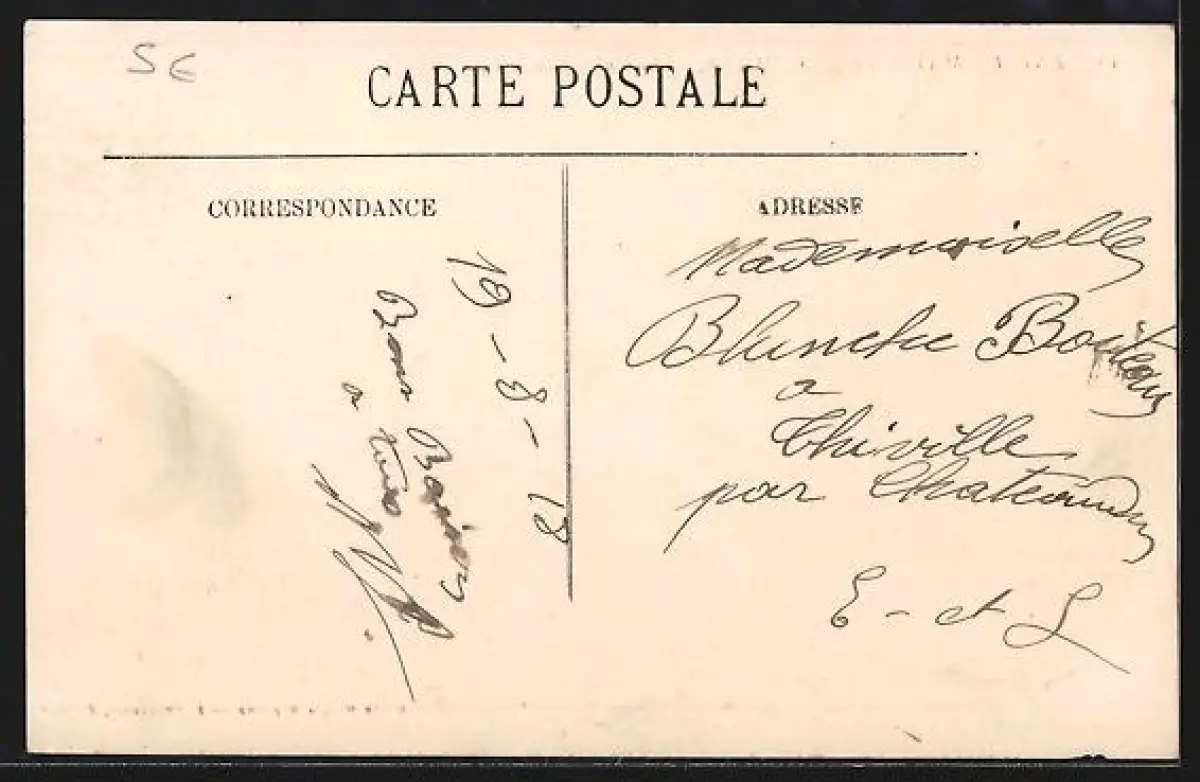 5 €
CARTE POSTALE
CORRESPONDANCE
19 - 8 - 18
Bons Baisers
a tous
ADRESSE
Mademoiselle
Blanche
a
Thiville
par Chateaudun
E - et L